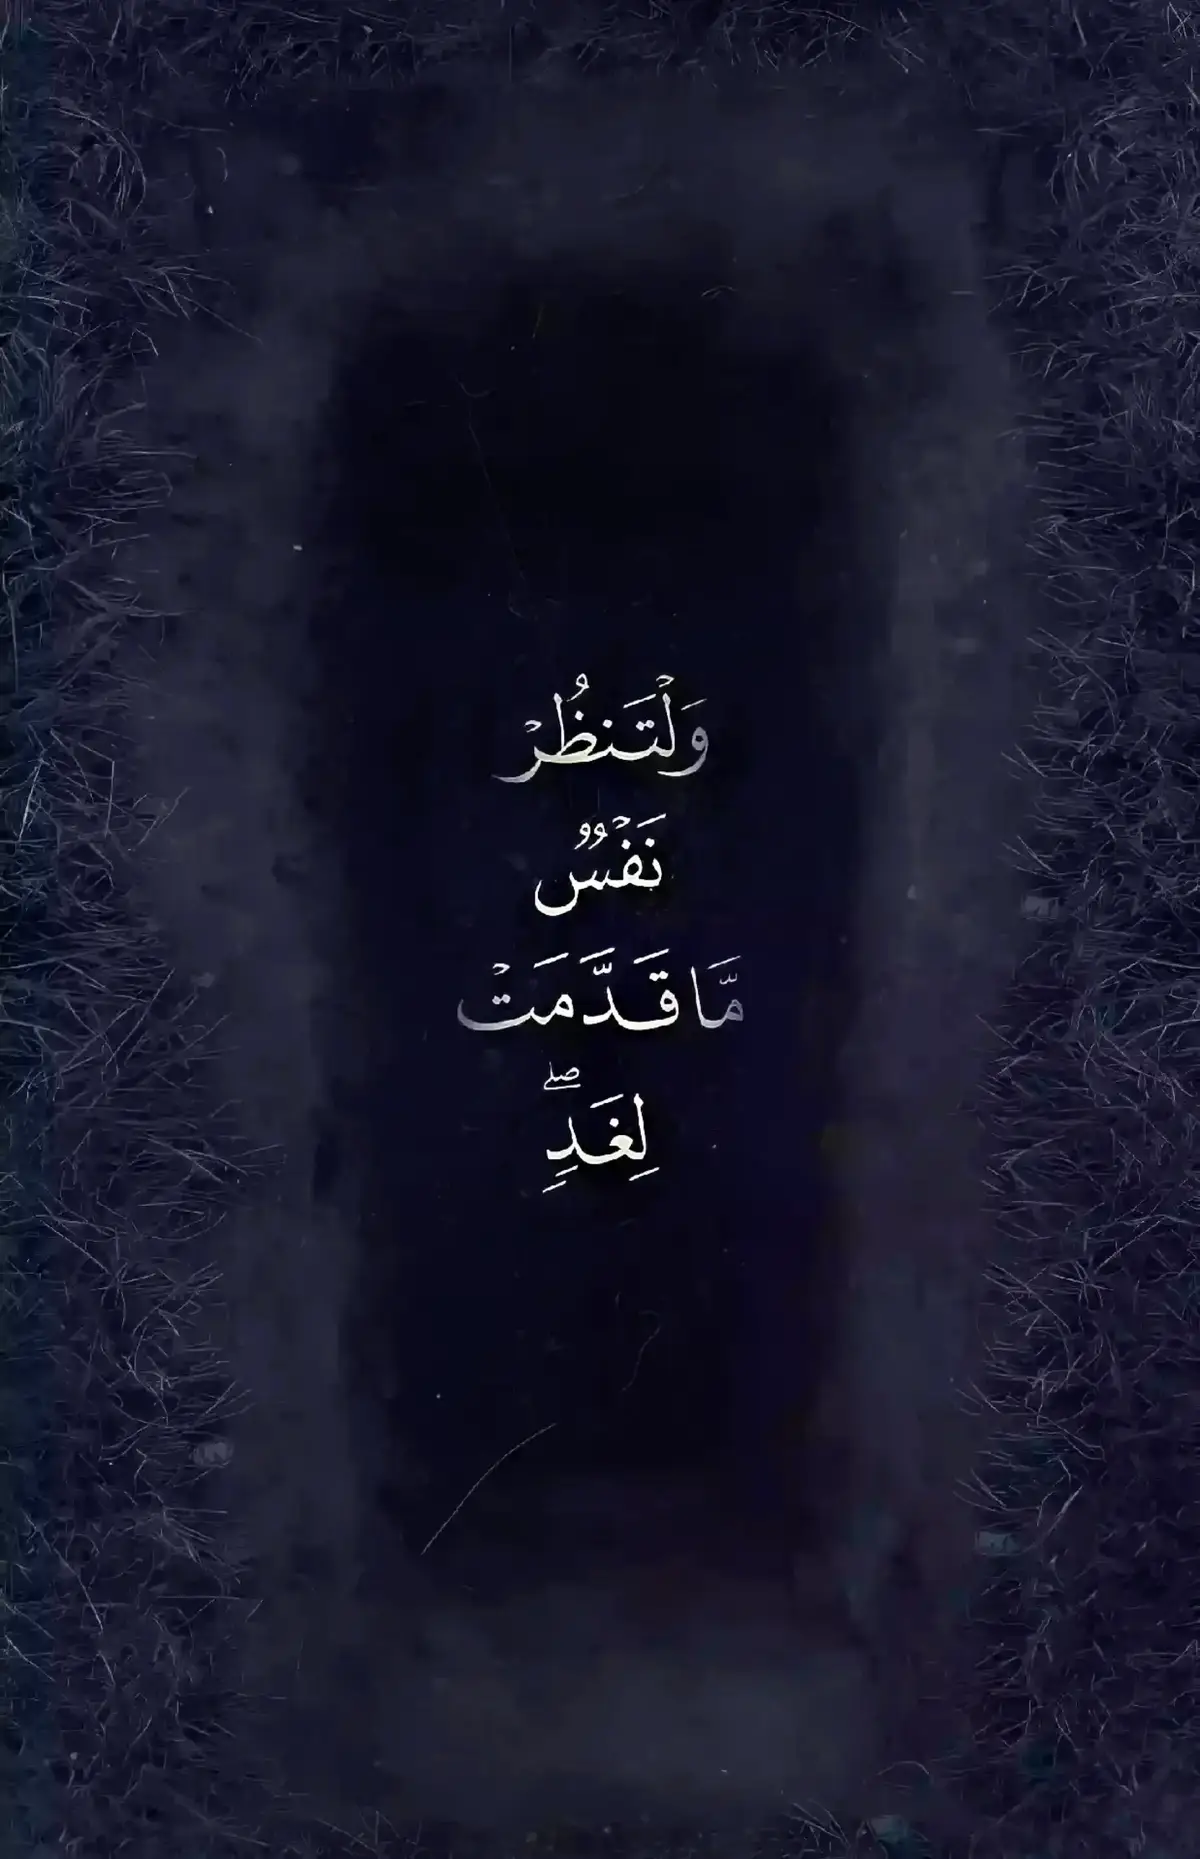 وَلْتَنظُرْ
نَفْسٌ
مَّا قَدَّمَتْ
لِغَدٍۖ